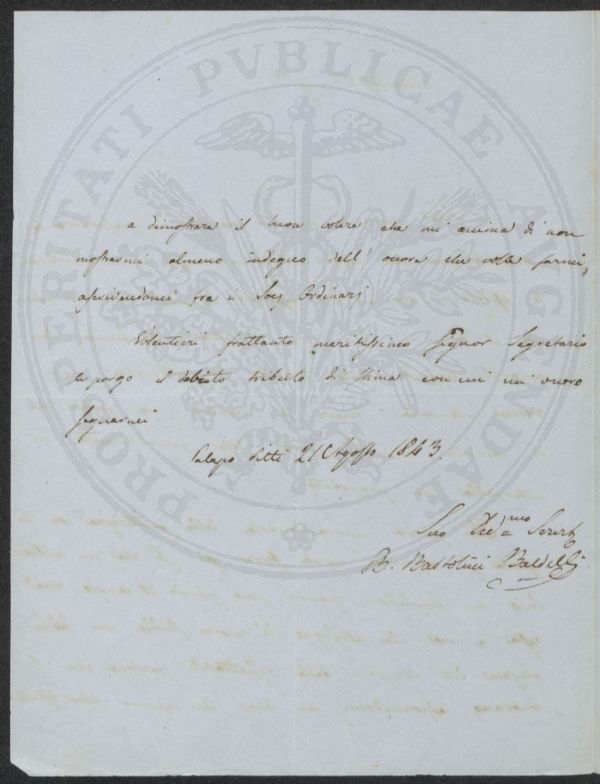 PROSPERITATI PVBLICAE AVGENDAE
a dimostrare il buon volere che mi anima di non
mostrarmi almeno indegno dell' onore che volle farmi,
ascrivendomi fra i Socj Ordinarj.
Volentieri frattanto meritissimo Signor Segretario
le porgo il tributo di stima con cui mi onoro
segnarmi
21 Agosto 1843.
Suo
B. Bartolini Baldelli